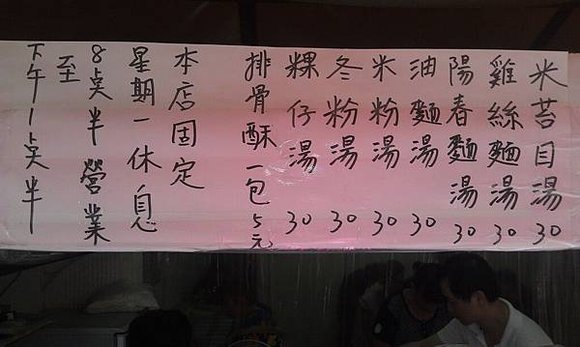 米苔目湯 30
雞絲麵湯 30
陽春麵湯 30
油麵湯 30
米粉湯 30
冬粉湯 30
粿仔湯 30
排骨酥一包5元
本店固定
星期一休息
8点半營業
至
下午1点半